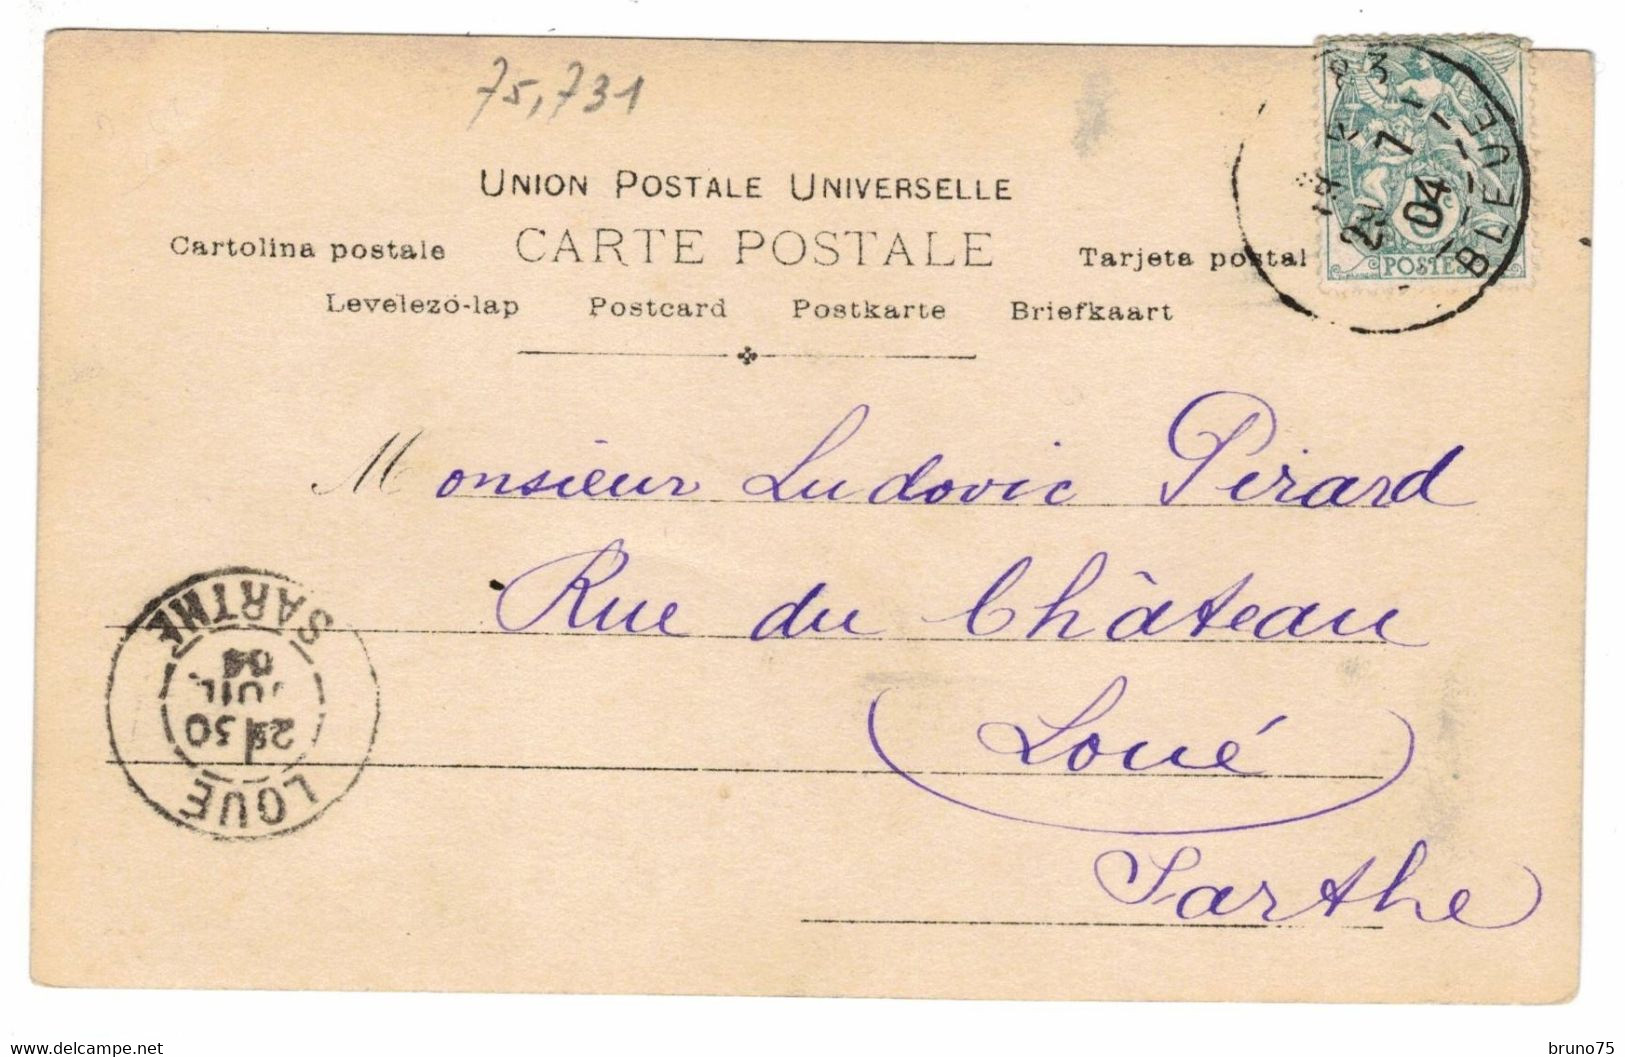 75,731
UNION POSTALE UNIVERSELLE
Cartolina postale CARTE POSTALE Tarjeta postal
Levelezó-lap Postcard Postkarte Briefkaart
POSTES
BLEUE
04
Monsieur Ludovic Pirard
Rue du Château
Loué
Sarthe
LOUE
JUIL
04
SARTHE
www.delcampe.net
bruno75